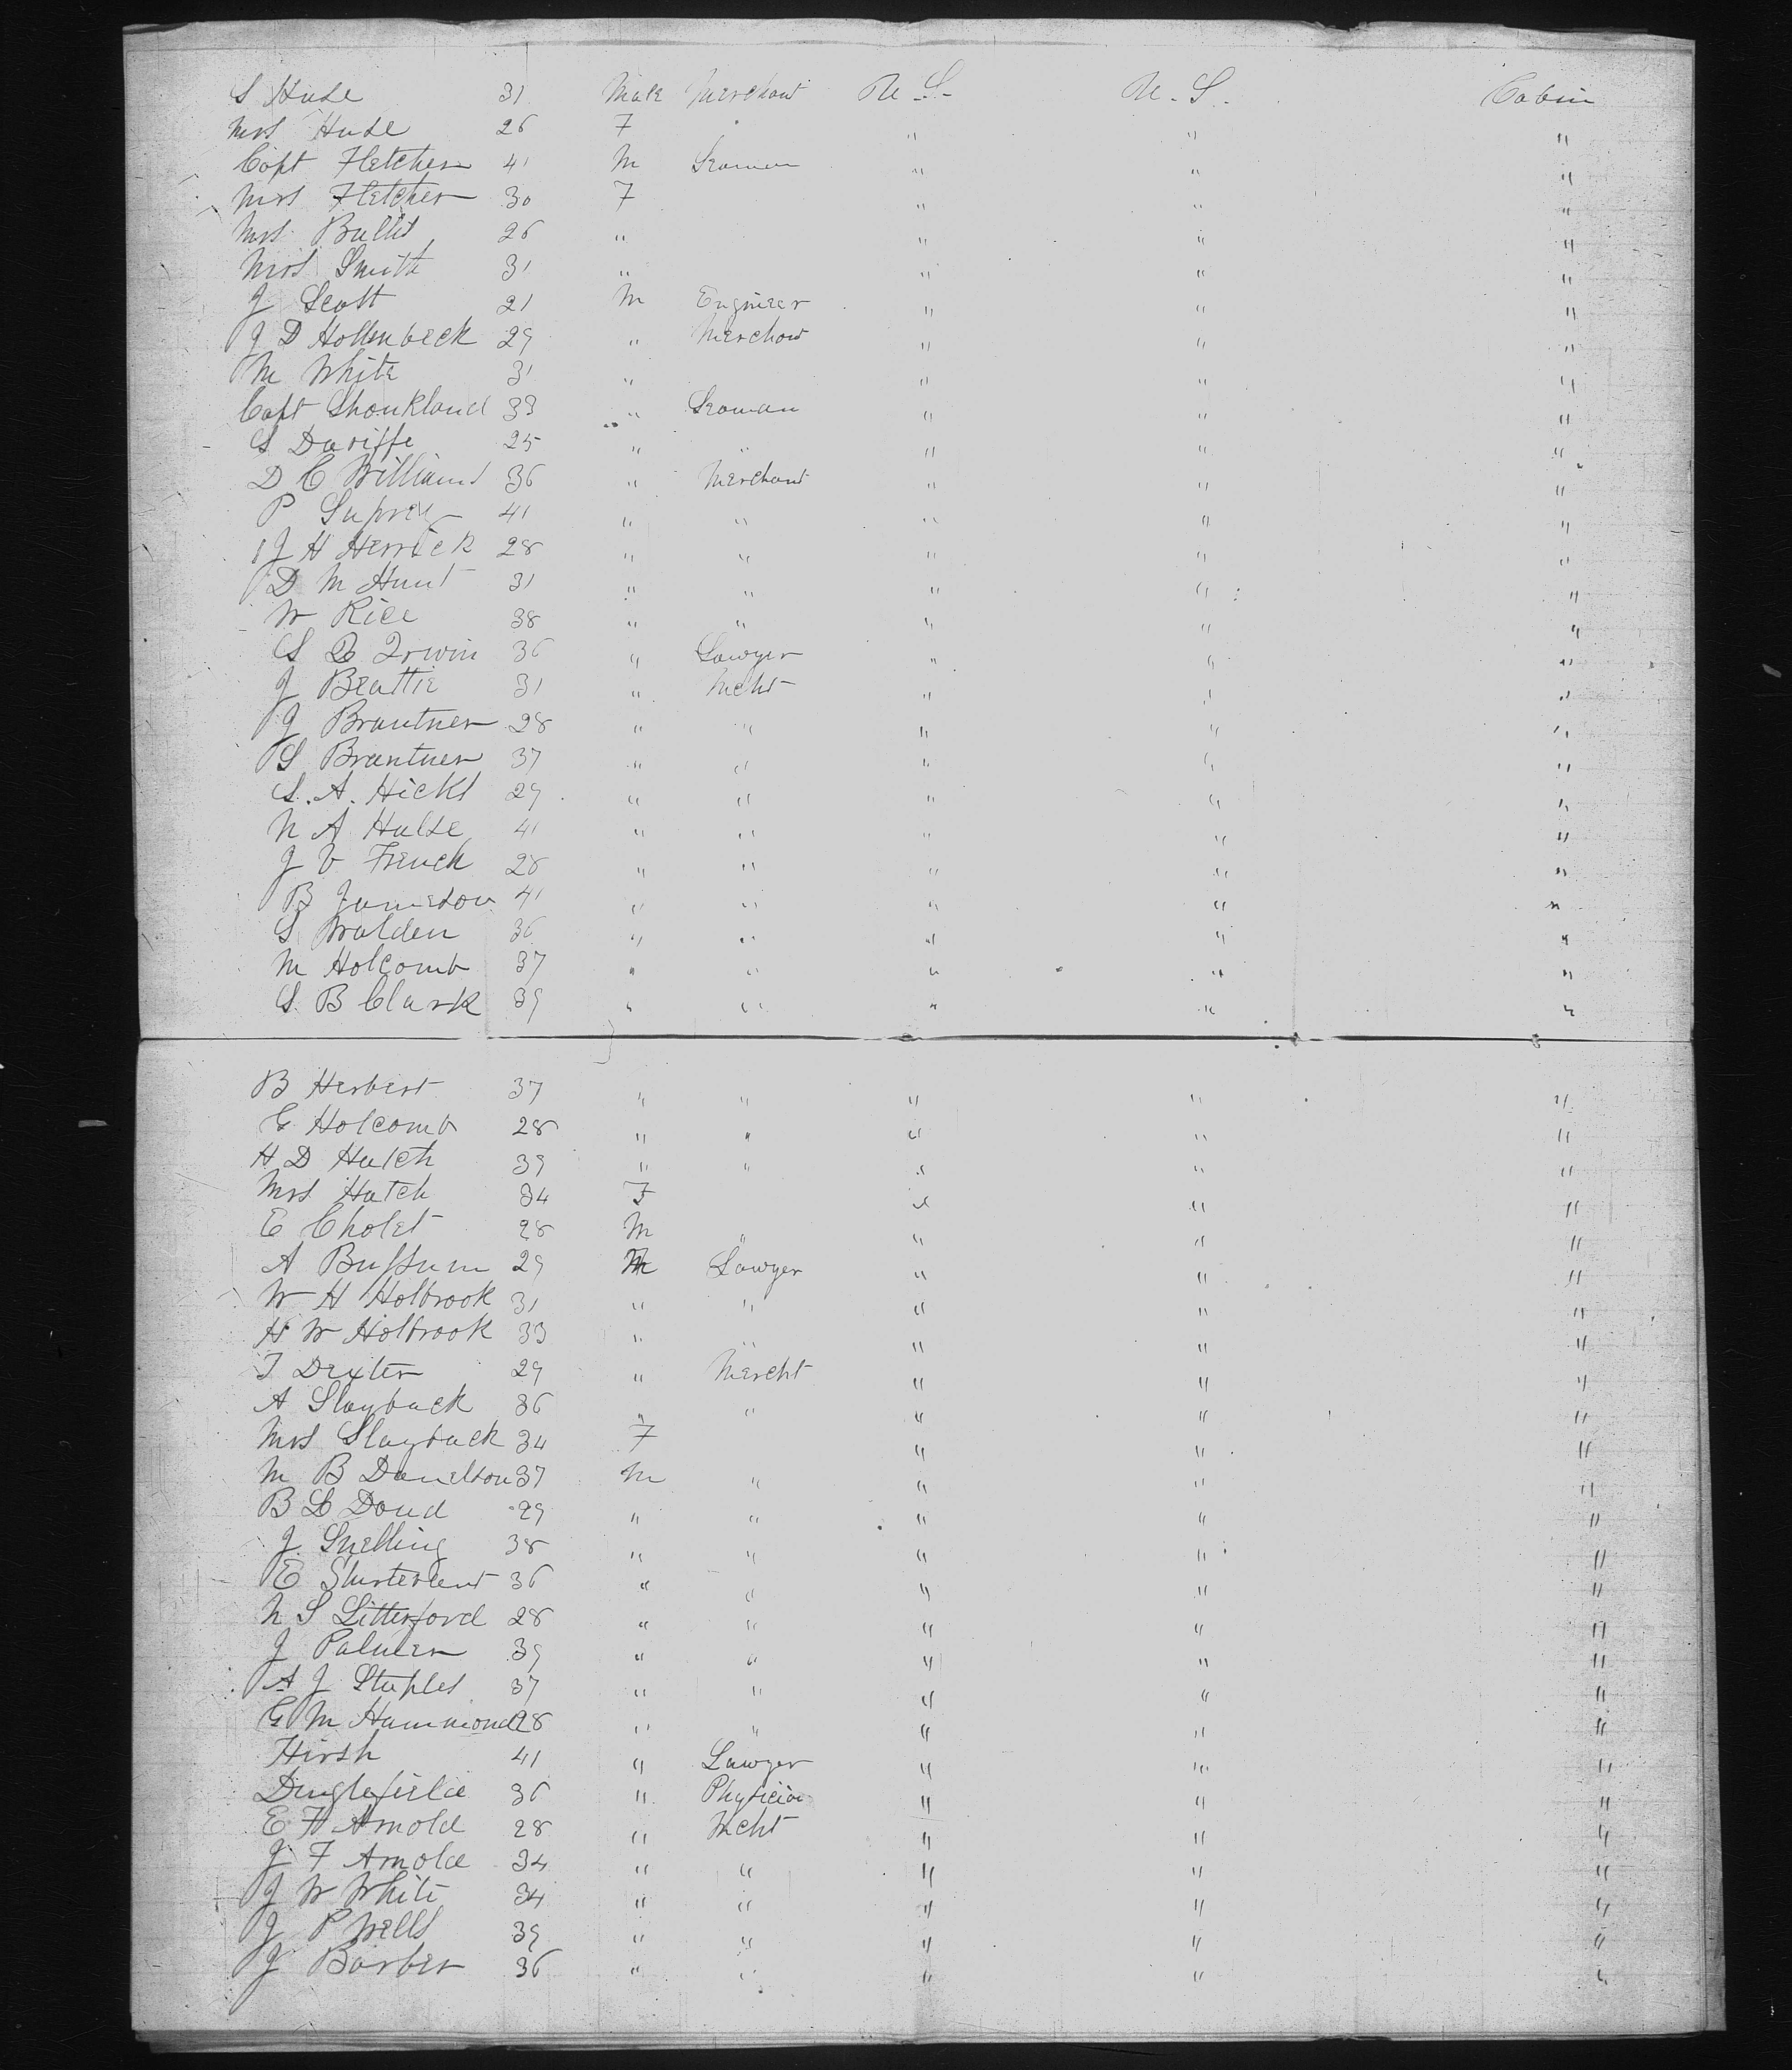 S Huse 31 Male Merchant U S- U. S. Cabin
Mrs Huse 26 F " " "
Capt Fletcher 41 M Seaman " " "
Mrs Fletcher 30 F " " "
Mrs 26 " " " "
Mrs Smith 31 " " " "
J Scott 21 M Engineer " " "
J D Hollenbeck 29 " Merchant " " "
M White 31 " " " "
Capt Shoukland 33 " Seaman " " "
S 25 " " " " "
D C Williams 36 " Merchant " " "
P 41 " " " " "
J H Herrick 28 " " " " "
D M Hunt 31 " " " " "
W Rice 38 " " " " "
S Irwin 36 " Lawyer " " "
J Beattie 31 " Mcht " " "
J Brantner 28 " " " " "
S Brantner 37 " " " " "
S. A. Hicks 29 " " " " "
N A Hulse 41 " " " " "
J V French 28 " " " " "
B Jameson 41 " " " " "
S Walden 36 " " " " "
M Holcomb 37 " " " " "
S. B Clark 39 " " " " "
B Herbert 37 " " " " "
G Holcomb 28 " " " " "
H D Hatch 39 " " " " "
Mrs Hatch 34 F " " "
E Cholet 28 M " " " "
A Buffum 29 M Lawyer " " "
W H Holbrook 31 " " " " "
H W Holbrook 33 " " " " "
T Dexter 29 " Mercht " " "
A Slayback 36 " " " " "
Mrs Slayback 34 F " " "
M B Danelson 37 M " " " "
B L Doud 29 " " " " "
J. Snelling 38 " " " " "
E 36 " " " " "
N S Litterford 28 " " " " "
J Palmer 39 " " " " "
A J Staples 37 " " " " "
G M Hammond 28 " " " " "
Hirsh 41 " Lawyer " " "
36 " Physician " " "
E H Arnold 28 " Mcht " " "
J F Arnold 34 " " " " "
J W White 34 " " " " "
J P Wells 39 " " " " "
J Barber 36 " " " " "